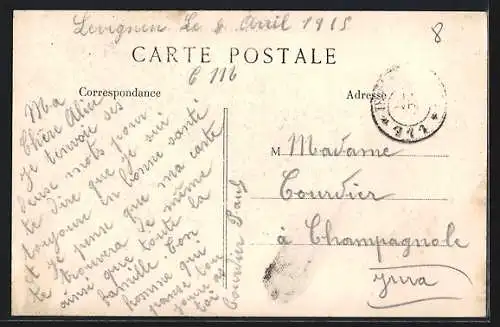 Levignen Le 8 Avril 1915
8
CARTE POSTALE
C 116
Correspondance
Adresse
Ma
Chère Alice
je t'envoi ses
deux mots pour
te dire que je sui
toujours en bonne santé
et je pense que ma carte
te trouvera de même
ainsi que toute la
famille. Ton
homme qui
panse tou
jour a
toi
Courdier Paul
M Madame
Courdier
à Champagnole
Jura